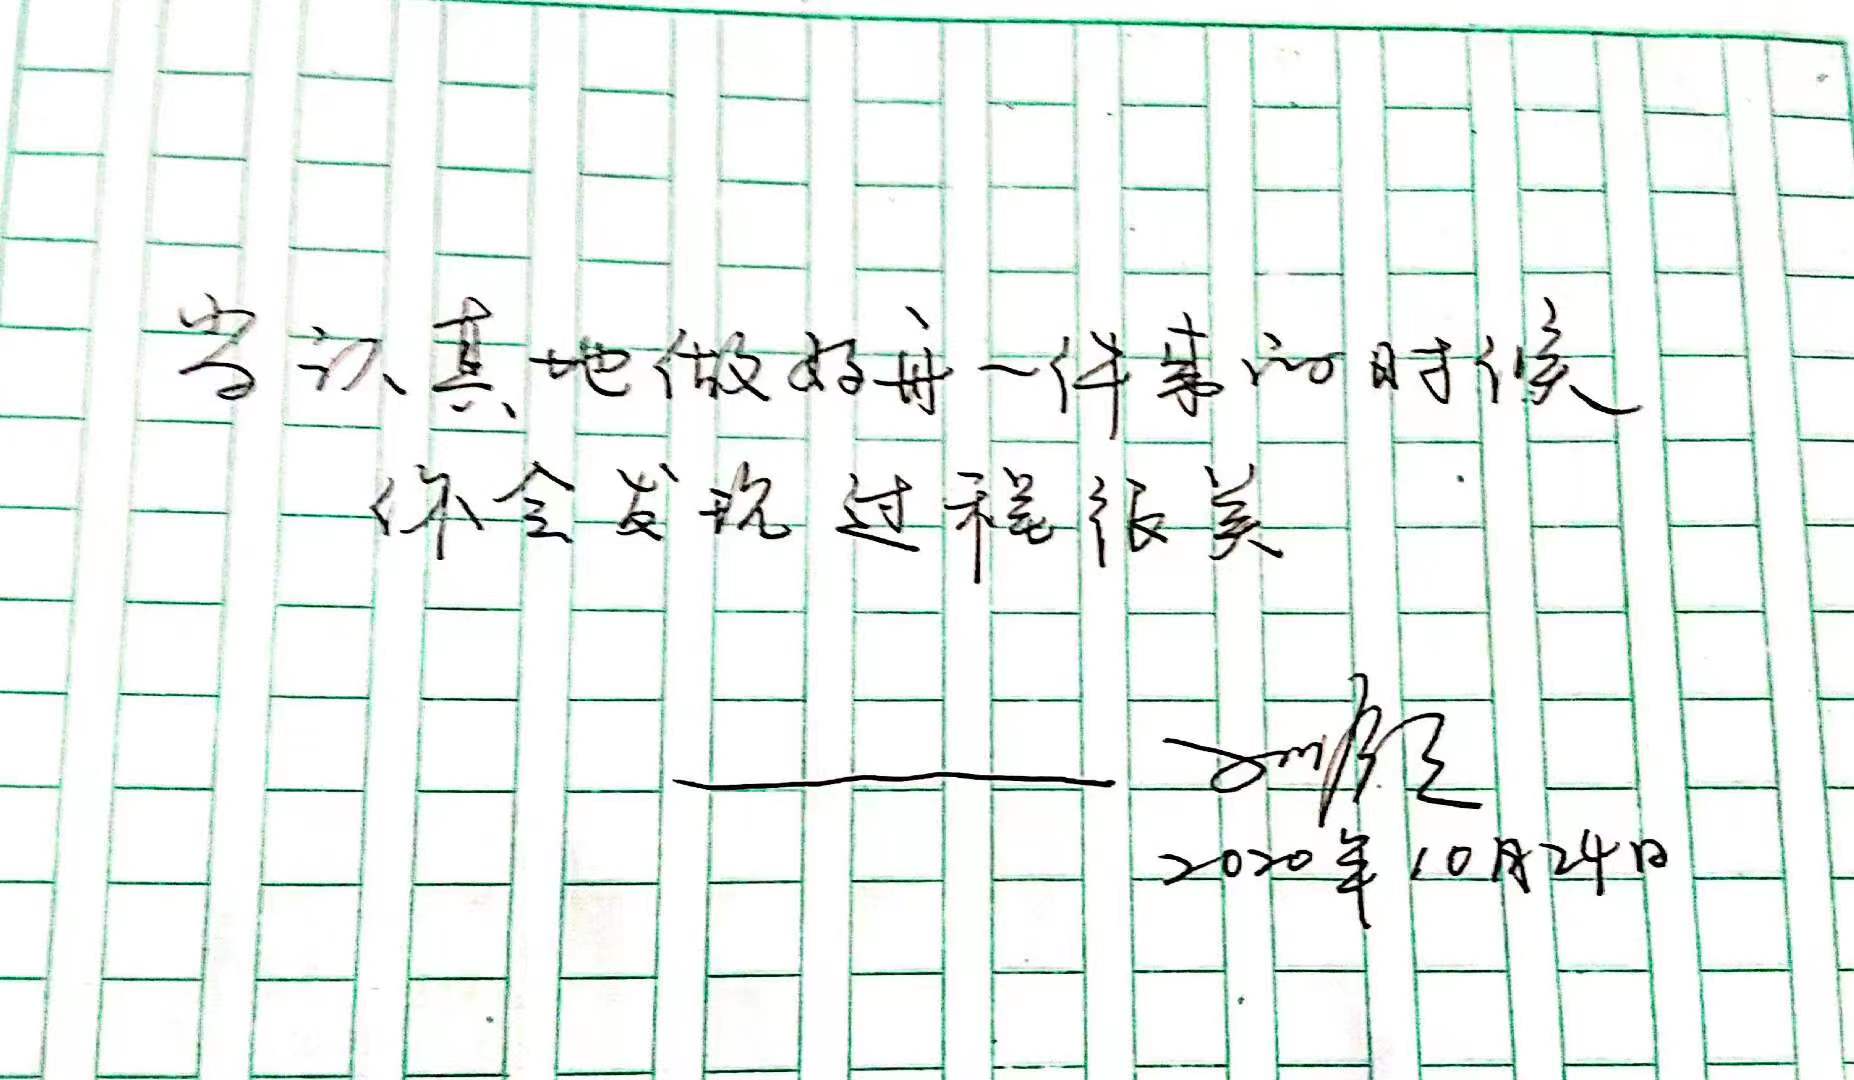 当认真地做好每一件事的时候
你会发现过程很美
2020年10月24日